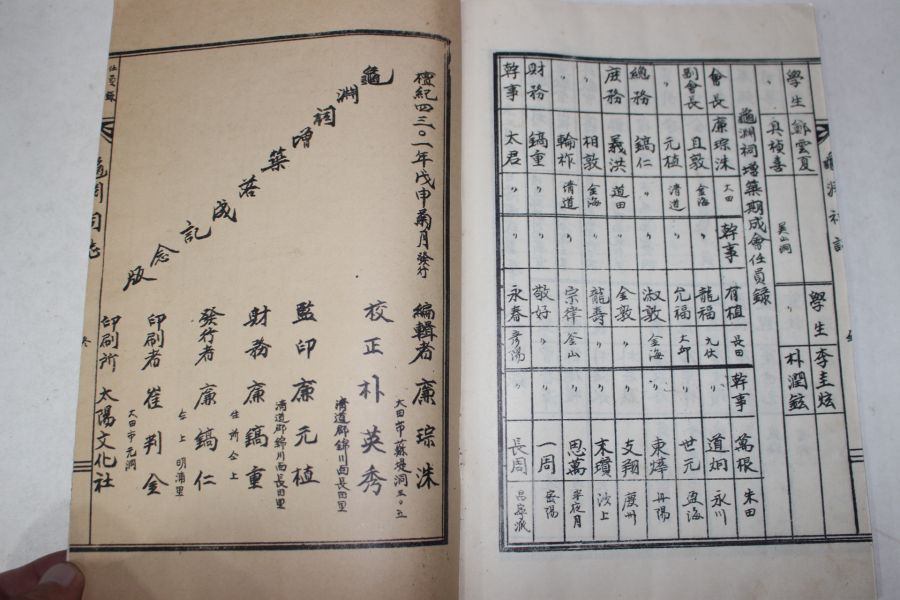 學生 鄭雲夏
〃 吳楨喜 吳山洞
學生 李圭炫
〃 朴潤鉉
龜淵祠增築期成會任員錄
會長 廉琮洙 大田
副會長 且敦 金海
〃 元植 清道
總務 鎬仁 〃
庶務 義洪 道田
〃 相敦 金海
〃 輪柞 清道
財務 鎬重 〃
幹事 太君 〃
幹事 有植 長田
〃 龍福
〃 允福 大邱
〃 淑敦 金海
〃 金敦 〃
〃 龍壽 〃
〃 宗律 釜山
〃 敬好 〃
〃 永春 彦陽
幹事 篤根 朱田
〃 道炯 永川
〃 世元 盈海
〃 東燁 丹陽
〃 支翔 慶州
〃 末瓚 汶上
〃 思萬 半夜月
〃 一周
〃 長周 昌寧派
檀紀四三〇一年戊申菊月發行
龜淵祠增築落成記念版
編輯者 廉琮洙
大田市蘇堤洞三〇五
校正 朴英秀
清道郡錦川面長田里
監印 廉元植
清道郡錦川面長田里
財務 廉鎬重
住所仝上
發行者 廉鎬仁
仝上 明浦里
印刷者 崔判金
大田市元洞
印刷所 太陽文化社
任員錄
龜淵祠誌
終